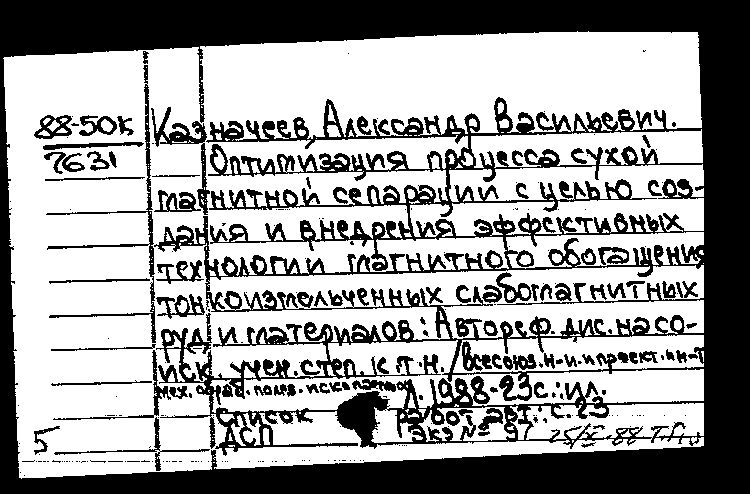 88-50к
7631
Казначеев, Александр Васильевич.
Оптимизация процесса сухой
магнитной сепарации с целью соз-
дания и внедрения эффективных
технологии магнитного обогащения
тонкоизмельченных слабомагнитных
руд и материалов: Автореф. дис. на со-
иск. учен. степ. к.т.н. /Всесоюз. н-и. и проект. ин-т
мех. обраб. полез. ископаемых
Л. 1988.-23с.:ил.
Список работ авт.: с.23
ДСП Экз № 97
5 25/X-88